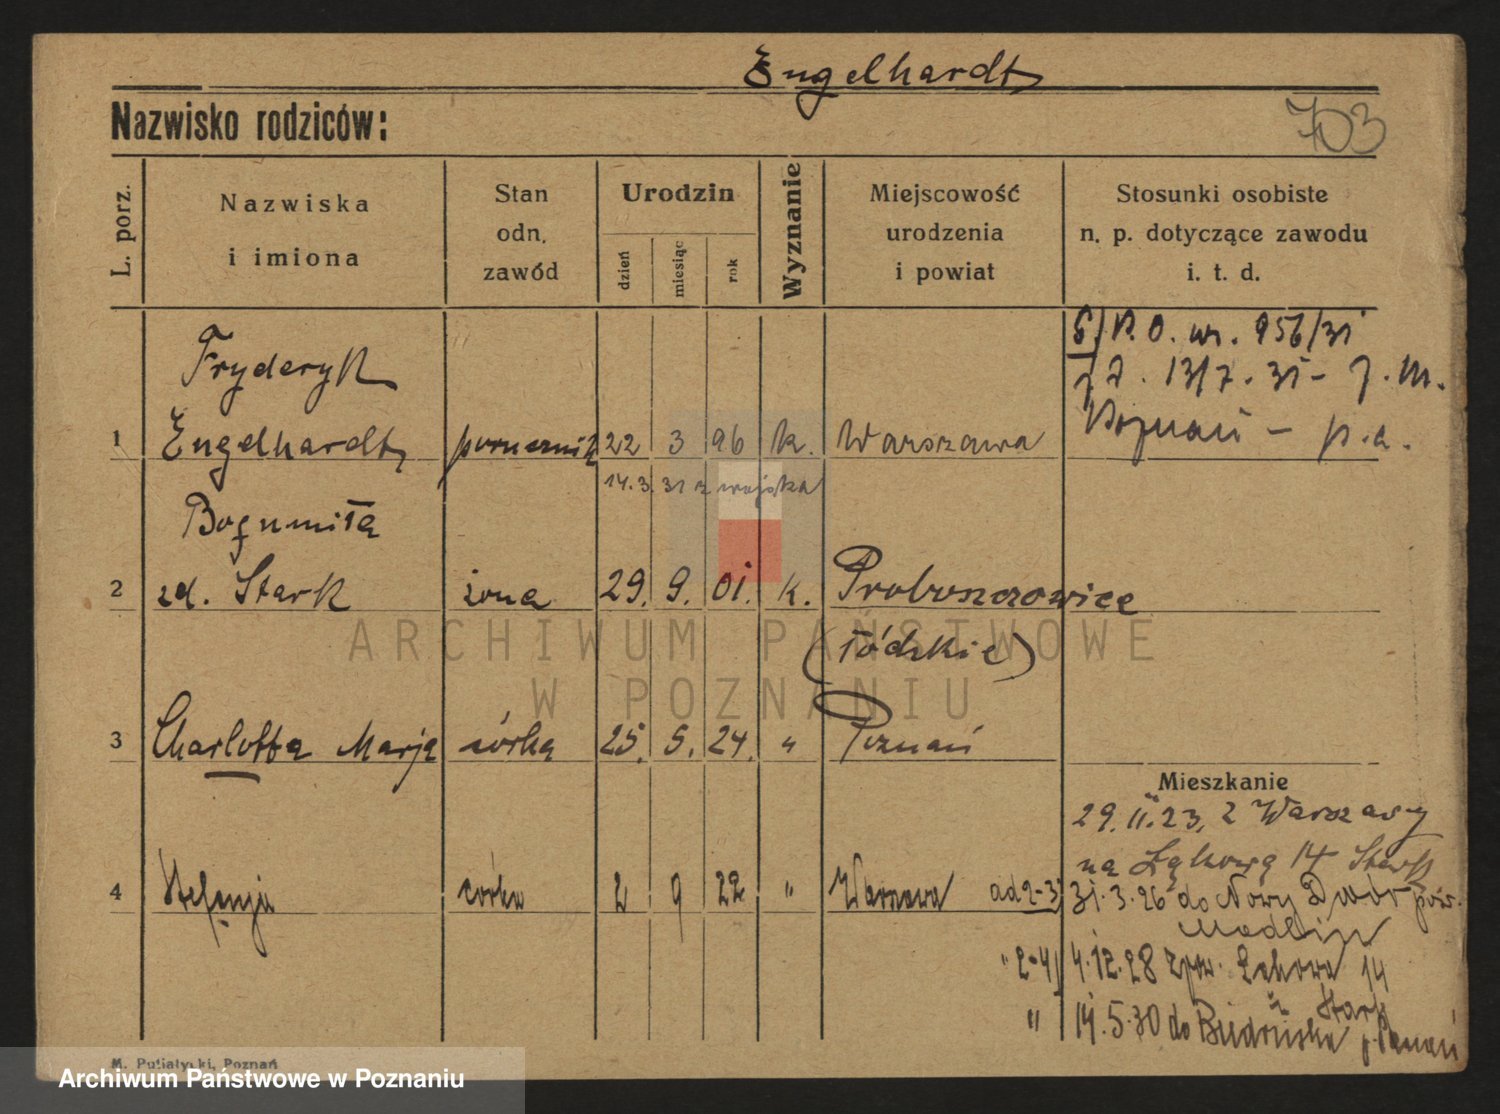 Engelhardt
Nazwisko rodziców:
703
L. porz.
Nazwiska
i imiona
Stan
odn.
zawód
Urodzin
dzień
miesiąc
rok
Wyznanie
Miejscowość
urodzenia
i powiat
Stosunki osobiste
n. p. dotyczące zawodu
i. t. d.
P. O. nr. 956/31
13/7. 31 - J. M.
Poznań - p. a.
Fryderyk
1 Engelhardt porucznik 22 3 96 k. Warszawa
14.3.31 z wojska
Bogumiła
2 zd. Stark żona 29. 9. 01. k. Proboszczowice
(łódzkie)
ARCHIWUM PAŃSTWOWE
W POZNANIU
3 Charlotta Marja córka 25. 5. 24. " Poznań
Mieszkanie
29.II.23. z Warszawy
na Łąkową 14 Stark
4 Stefanja córka 2 9 22 " Warszawa ad 2-3
31.3.26 do Nowy Dwór pow.
Modlin
" 2-4 4.12.28 Łąkowa 14
u Stark
" 14.5.30 do Biedruska p. Poznań
M. Putiatycki, Poznań
Archiwum Państwowe w Poznaniu